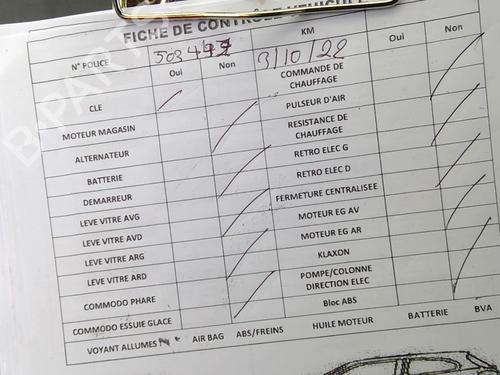 FICHE DE CONTROLE VEHICULE
N° POLICE 503 KM 3/10/22
Oui Non Oui Non
CLE COMMANDE DE CHAUFFAGE
MOTEUR MAGASIN PULSEUR D'AIR
ALTERNATEUR RESISTANCE DE CHAUFFAGE
BATTERIE RETRO ELEC G
DEMARREUR RETRO ELEC D
LEVE VITRE AVG FERMETURE CENTRALISEE
LEVE VITRE AVD MOTEUR EG AV
LEVE VITRE ARG MOTEUR EG AR
LEVE VITRE ARD KLAXON
COMMODO PHARE POMPE/COLONNE DIRECTION ELEC
COMMODO ESSUIE GLACE Bloc ABS
VOYANT ALLUMES AIR BAG ABS/FREINS HUILE MOTEUR BATTERIE BVA